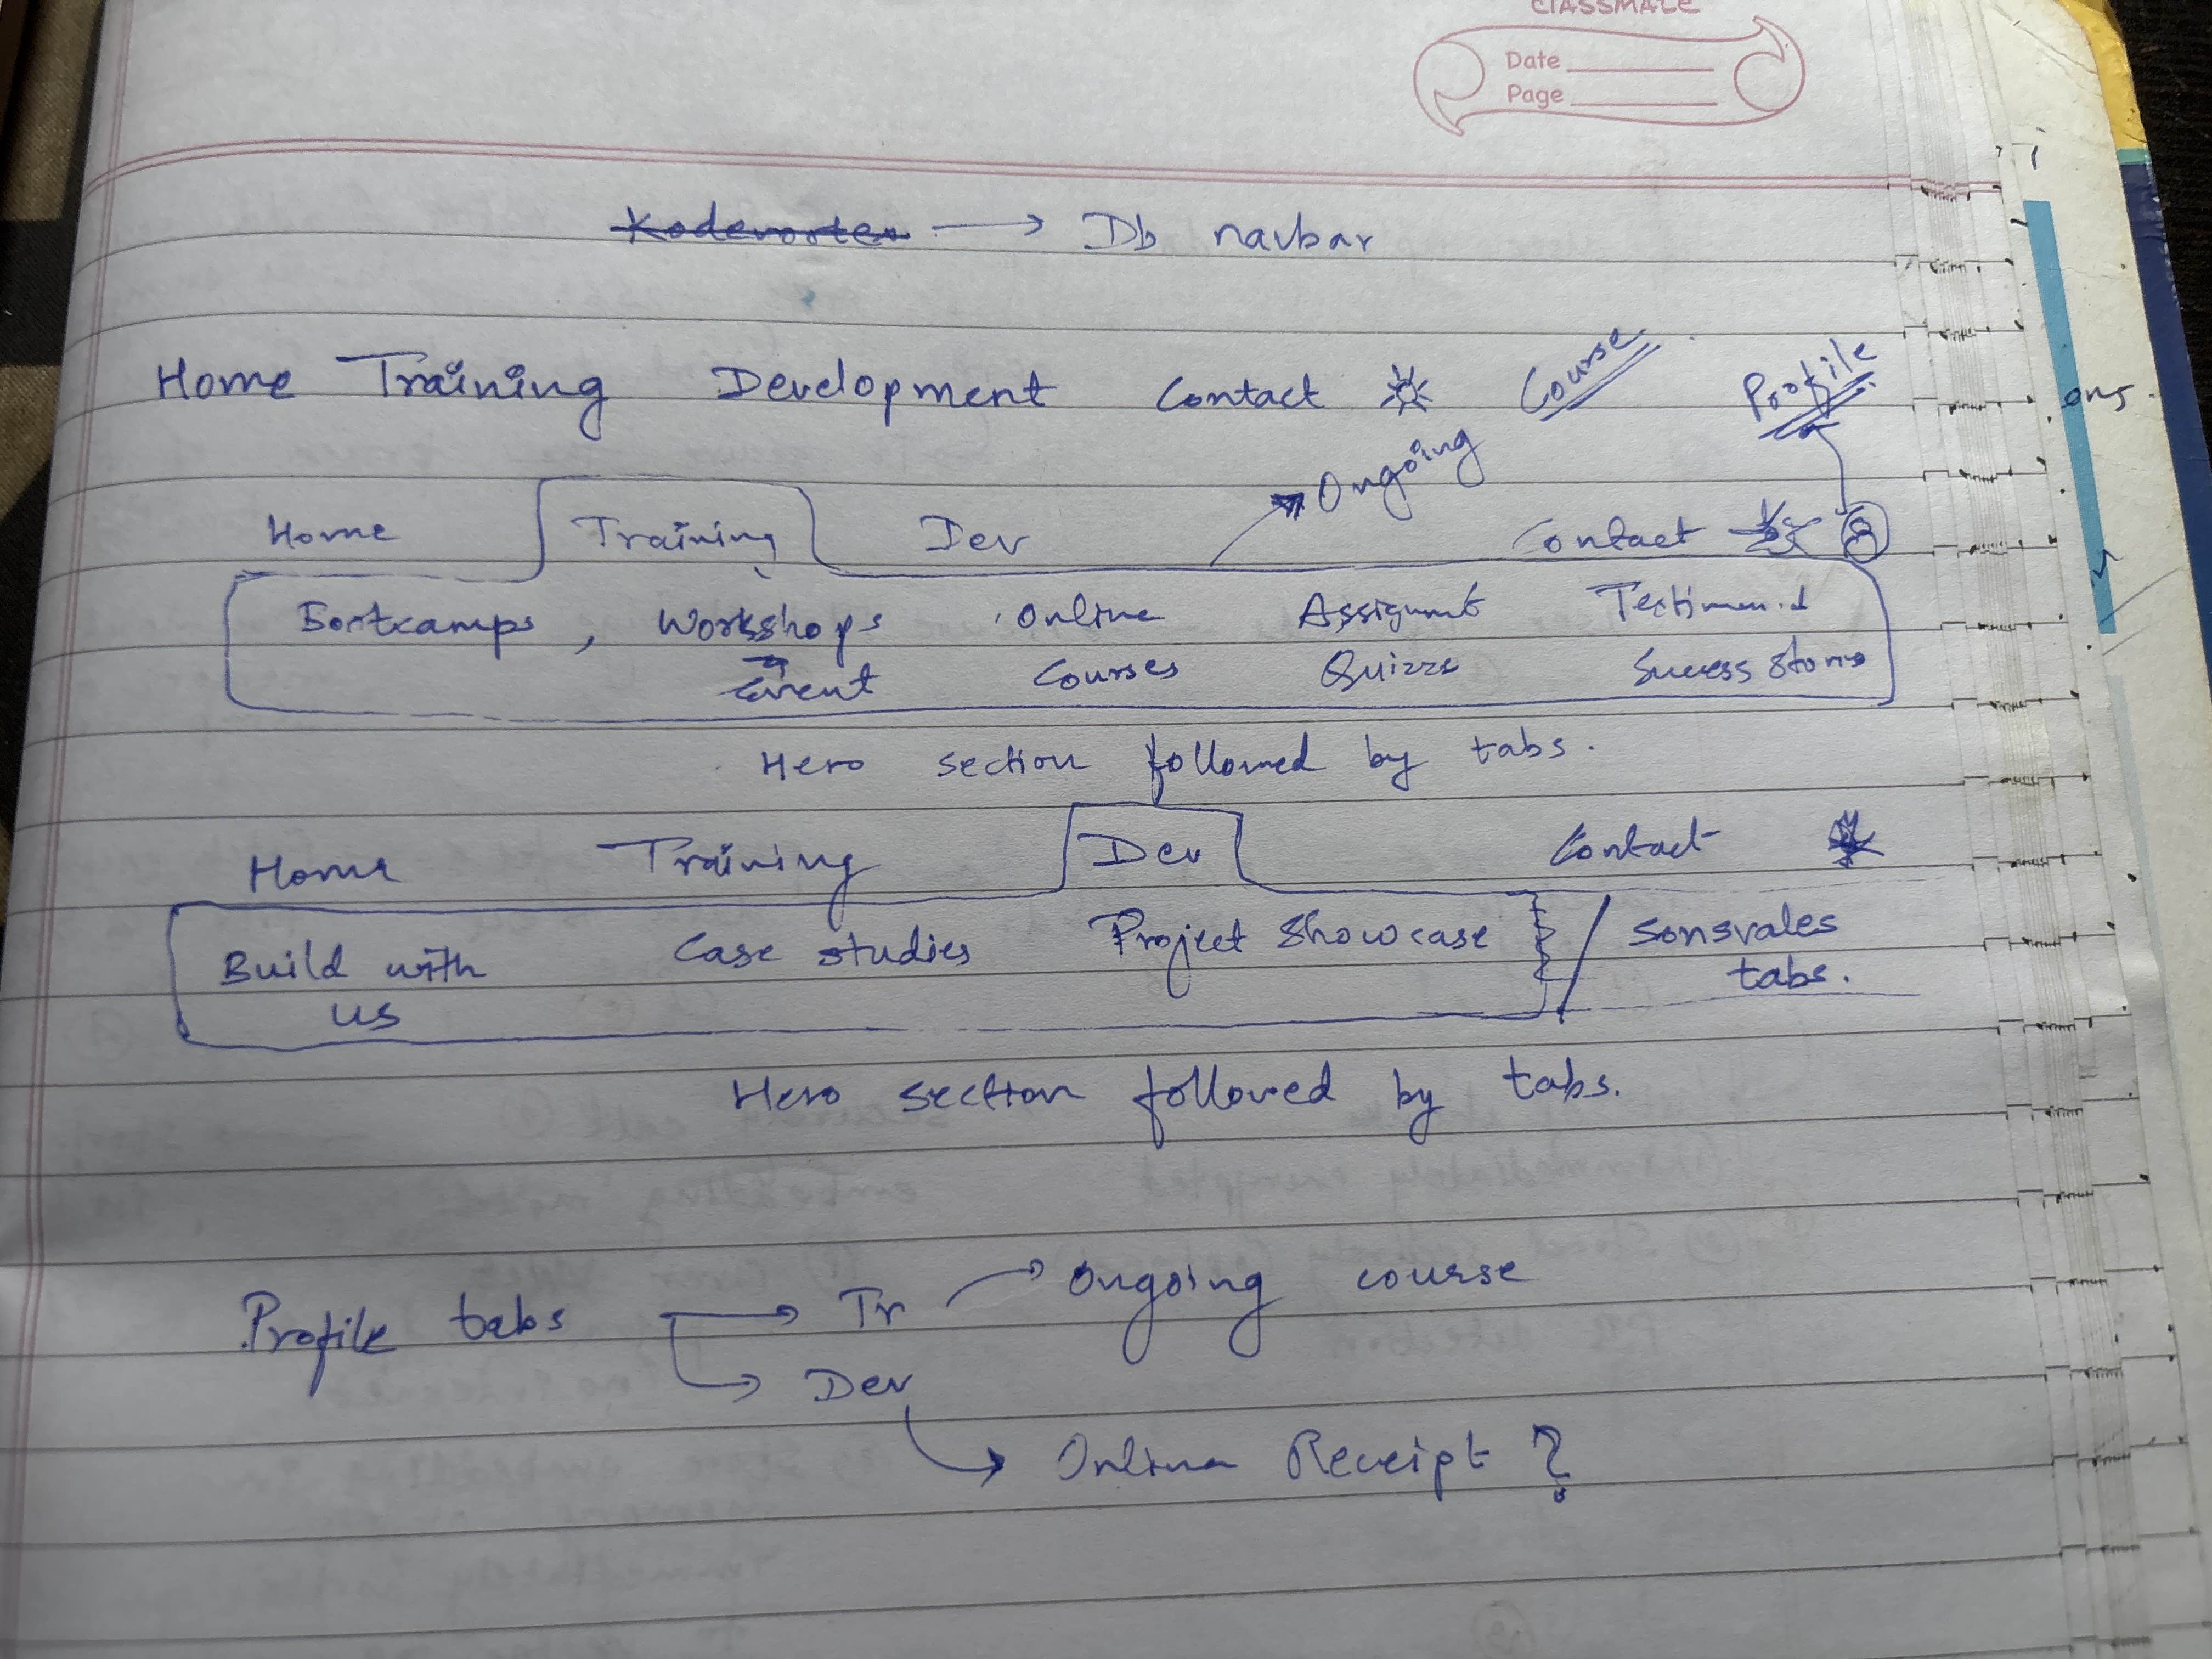 classmate
Date
Page
Db navbar
Home Training Development Contact Course Profile
Ongoing
Home Training Dev Contact
Bootcamps, Workshops Online Assignmt Testimonial
Event Courses Quizze Success stories
Hero section followed by tabs.
Home Training Dev Contact
Build with us Case studies Project Showcase tabs.
Hero section followed by tabs.
Profile tabs Tr Ongoing course
Dev
Online Receipt ?
ons.